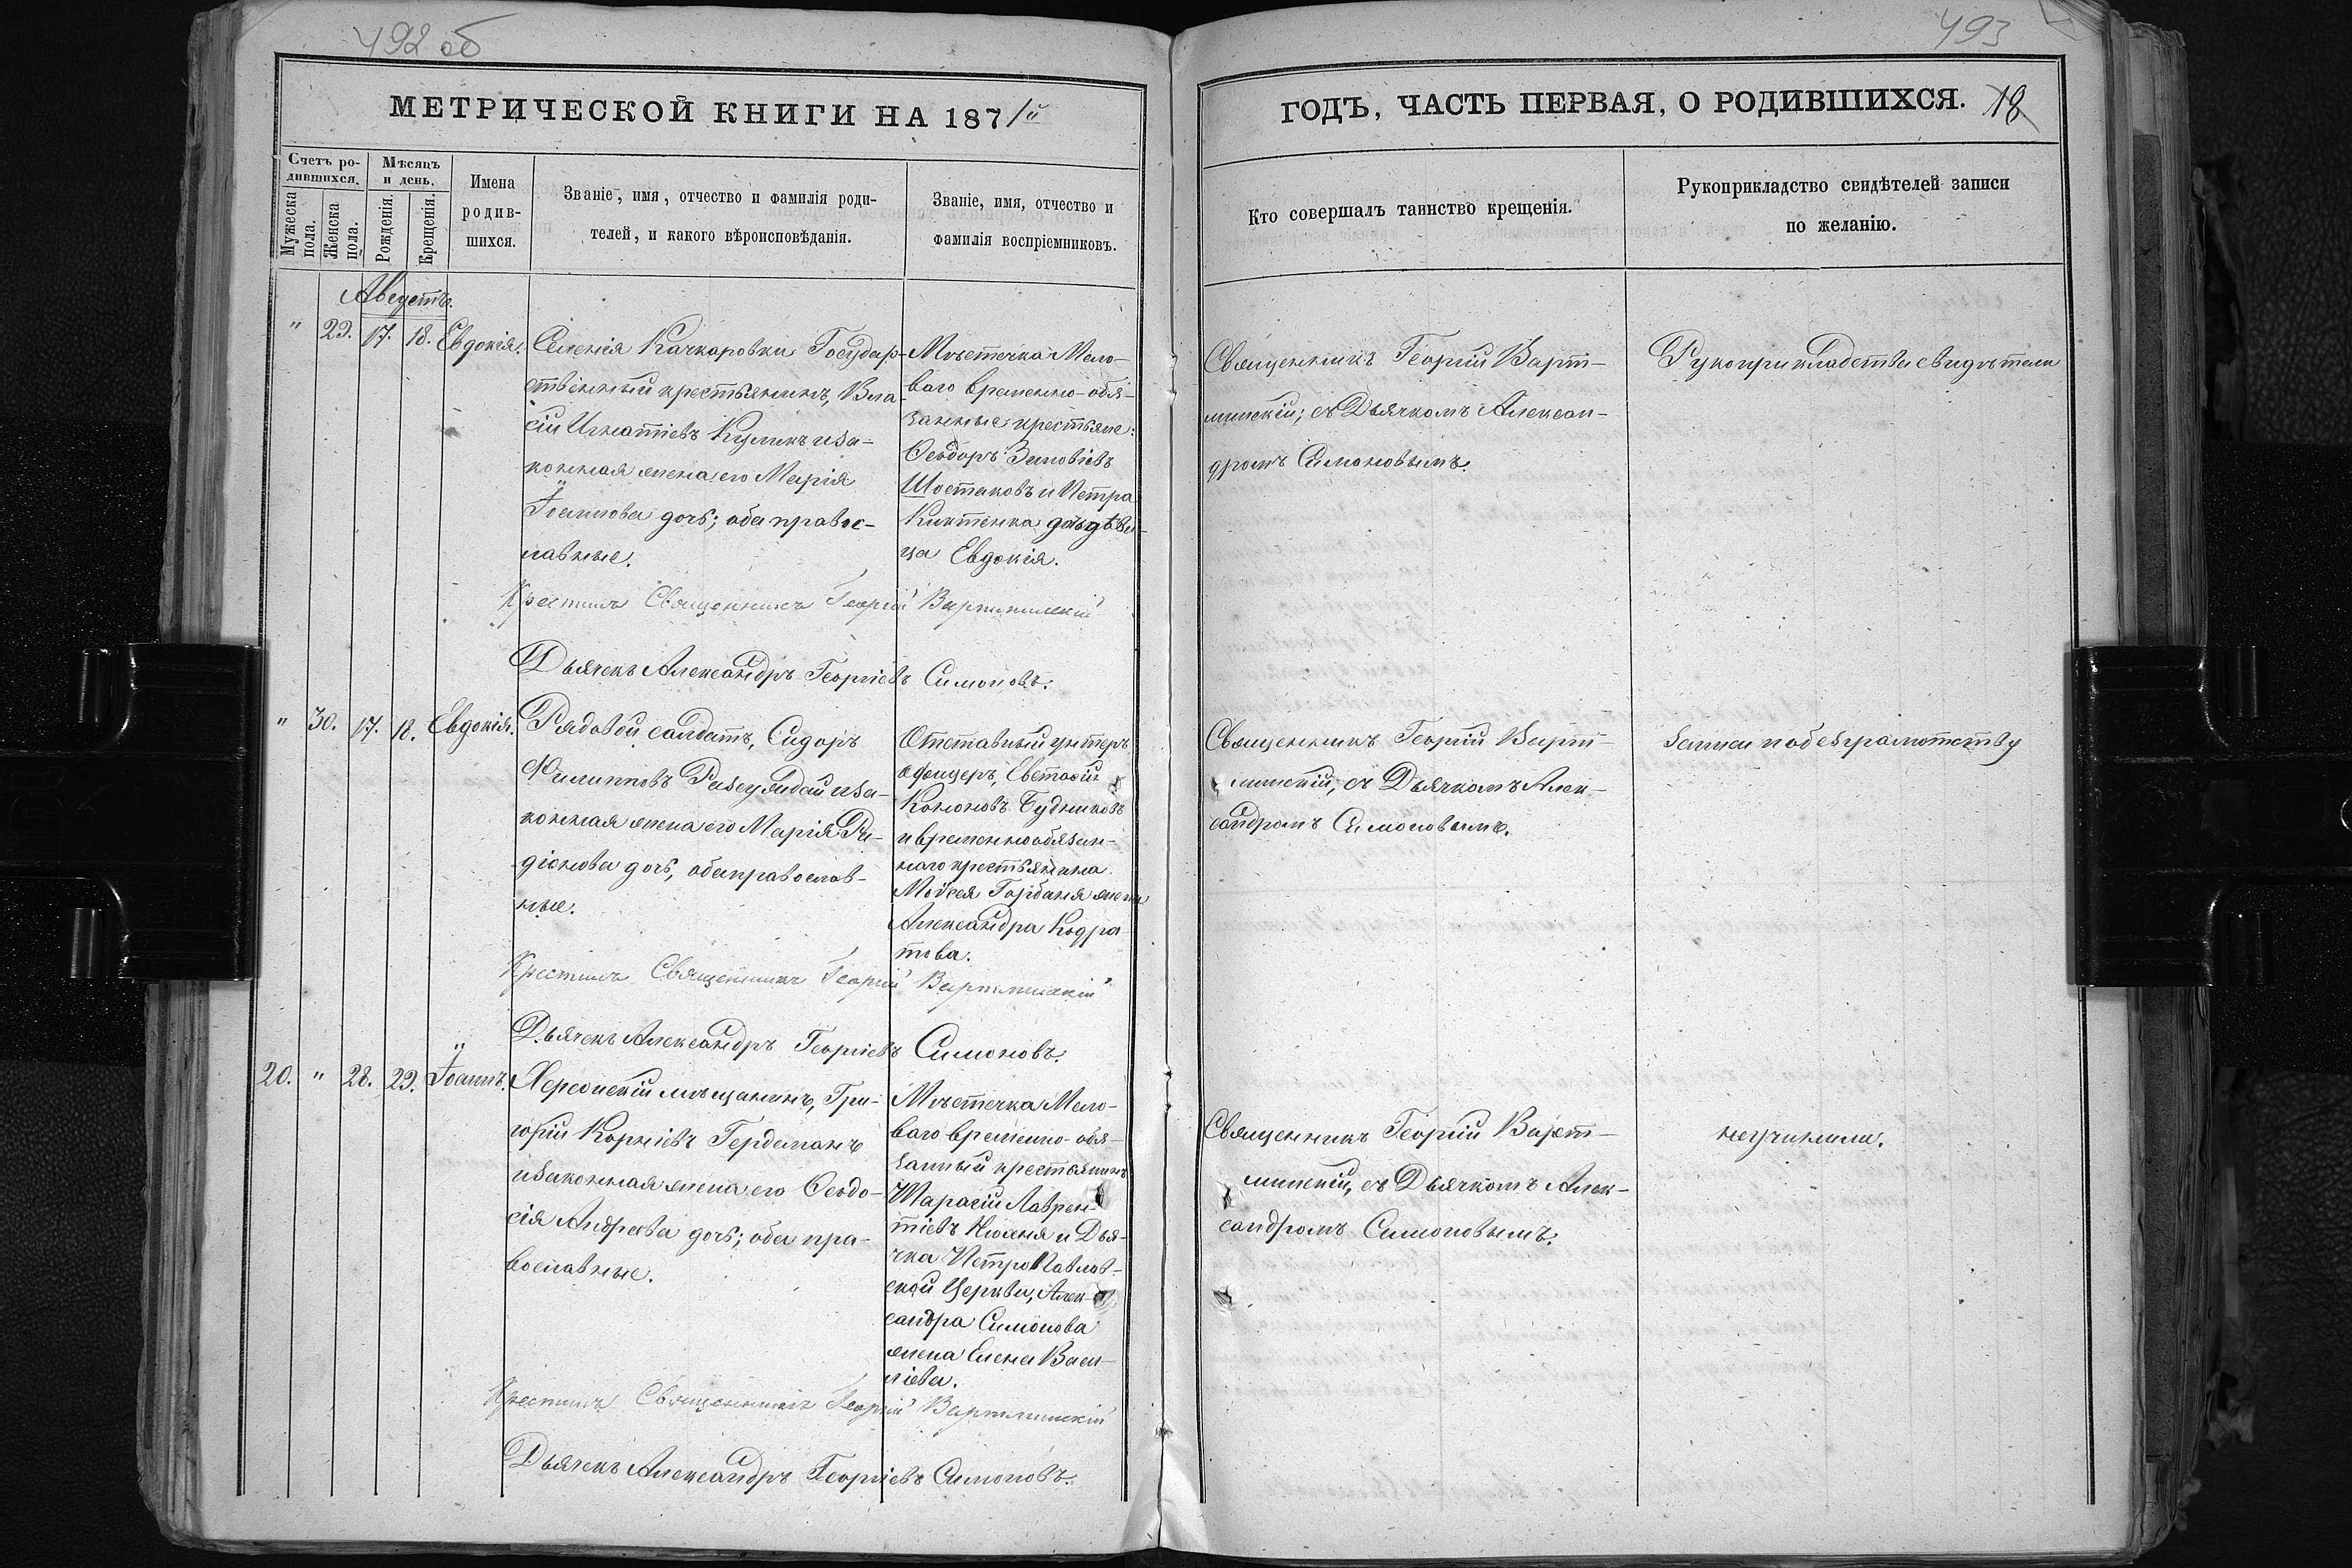 492 об
МЕТРИЧЕСКОЙ КНИГИ НА 1871й
Счетъ ро-
дившихся.
Мѣсяцъ
и день.
Мужеска
пола.
Женска
пола.
Рожденія.
Крещенія.
Имена
родив-
шихся.
Званіе, имя, отчество и фамилія роди-
телей, и какого вѣроисповѣданія.
Званіе, имя, отчество и
фамилія воспріемниковъ.
Августъ.
" 29. 17. 18. Евдокія.
Селенія Качкаровки Государ-
ственный крестьянинъ, Вла-
сій Игнатіевъ Куликъ и за-
конная жена его Марія
Іоаннова дочь; оба правос-
лавные.
Мѣстечка Мело-
ваго временно-обя-
занные крестьяне:
Ѳеодоръ Зиновіевъ
Шостаковъ и Петра
Киктенка дочь дѣви-
ца Евдокія.
Крестилъ Священникъ Георгій
Дьячекъ Александръ Георгіевъ Симоновъ.
" 30. 17. 18. Евдокія.
Рядовой салдатъ, Сидоръ
Филипповъ и за-
конная жена его Марія Ра-
діонова дочь, оба православ-
ные.
Отставный унтеръ
офицеръ, Евстафій
Кононовъ Будниковъ
и временнообязан-
наго крестьянина
Моѵсея Горбаня жена
Александра Кодра-
това.
Крестилъ Священникъ Георгій
Дьячекъ Александръ Георгіевъ Симоновъ.
20. " 28. 29. Іоаннъ.
Херсонскій мѣщанинъ, Гри-
горій Корніевъ Герделанъ
и законная жена его Ѳеодо-
сія Андреева дочь; оба пра-
вославные.
Мѣстечка Мело-
ваго временно-обя-
занный крестьянинъ
Тарасій Лаврен-
тіевъ и Дья-
чка Петропавлов-
ской Церкви, Алек-
сандра Симонова
жена Елена Васи-
ліева.
Крестилъ Священникъ Георгій
Дьячекъ Александръ Георгіевъ Симоновъ.
493
ГОДЪ, ЧАСТЬ ПЕРВАЯ, О РОДИВШИХСЯ. 18
Кто совершалъ таинство крещенія.
Рукоприкладство свидѣтелей записи
по желанію.
Священникъ Георгій Варт-
минскій; съ Дьячкомъ Алексан-
дромъ Симоновымъ.
Рукоприкладства свидѣтели
Священникъ Георгій Варт-
минскій, съ Дьячкомъ Алек-
сандромъ Симоновымъ.
записи по безграмотству
Священникъ Георгій Варт-
минскій, съ Дьячкомъ Алек-
сандромъ Симоновымъ.
неучинили.